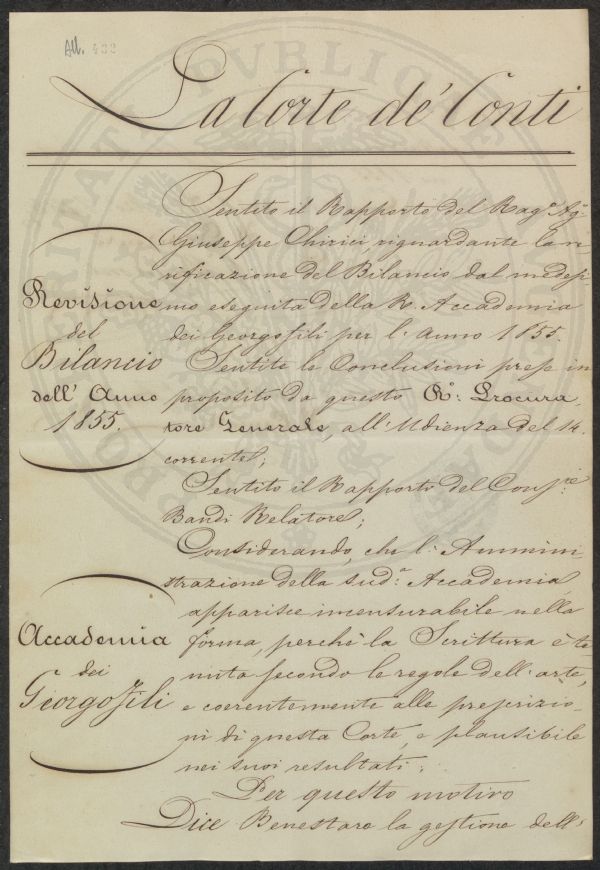 All. 432
La Corte de' Conti
Sentito il Rapporto del Rag.e Ag.e
Giuseppe Chirici, riguardante la ve
rificazione del Bilancio dal medesi
mo eseguita della R. Accademia
dei Georgofili per l'anno 1855.
Sentite le Conclusioni prese in
proposito da questo R.o Procura
tore Generale, all'Udienza del 14.
corrente;
Sentito il Rapporto del Cons.re
Bandi Relatore;
Considerando, che l'Ammini
strazione della sud.a Accademia,
apparisce incensurabile nella
forma, perchè la Scrittura è te
nuta secondo le regole dell'arte,
e coerentemente alle prescrizio
ni di questa Corte, e plausibile
nei suoi resultati;
Per questo motivo
Dice Benestare la gestione dell'
Revisione
del
Bilancio
dell'Anno
1855.
Accademia
dei
Georgofili